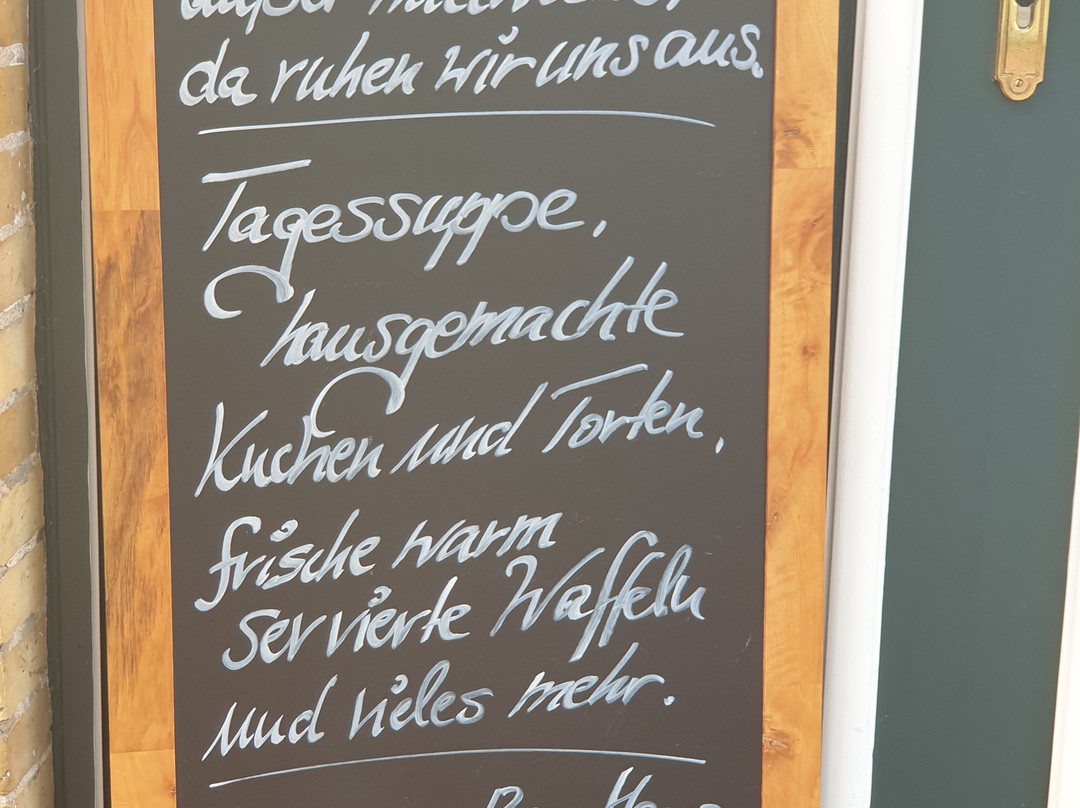 außer mittwochs,
da ruhen wir uns aus.
Tagessuppe,
hausgemachte
Kuchen und Torten,
frische warm
servierte Waffeln
und vieles mehr.